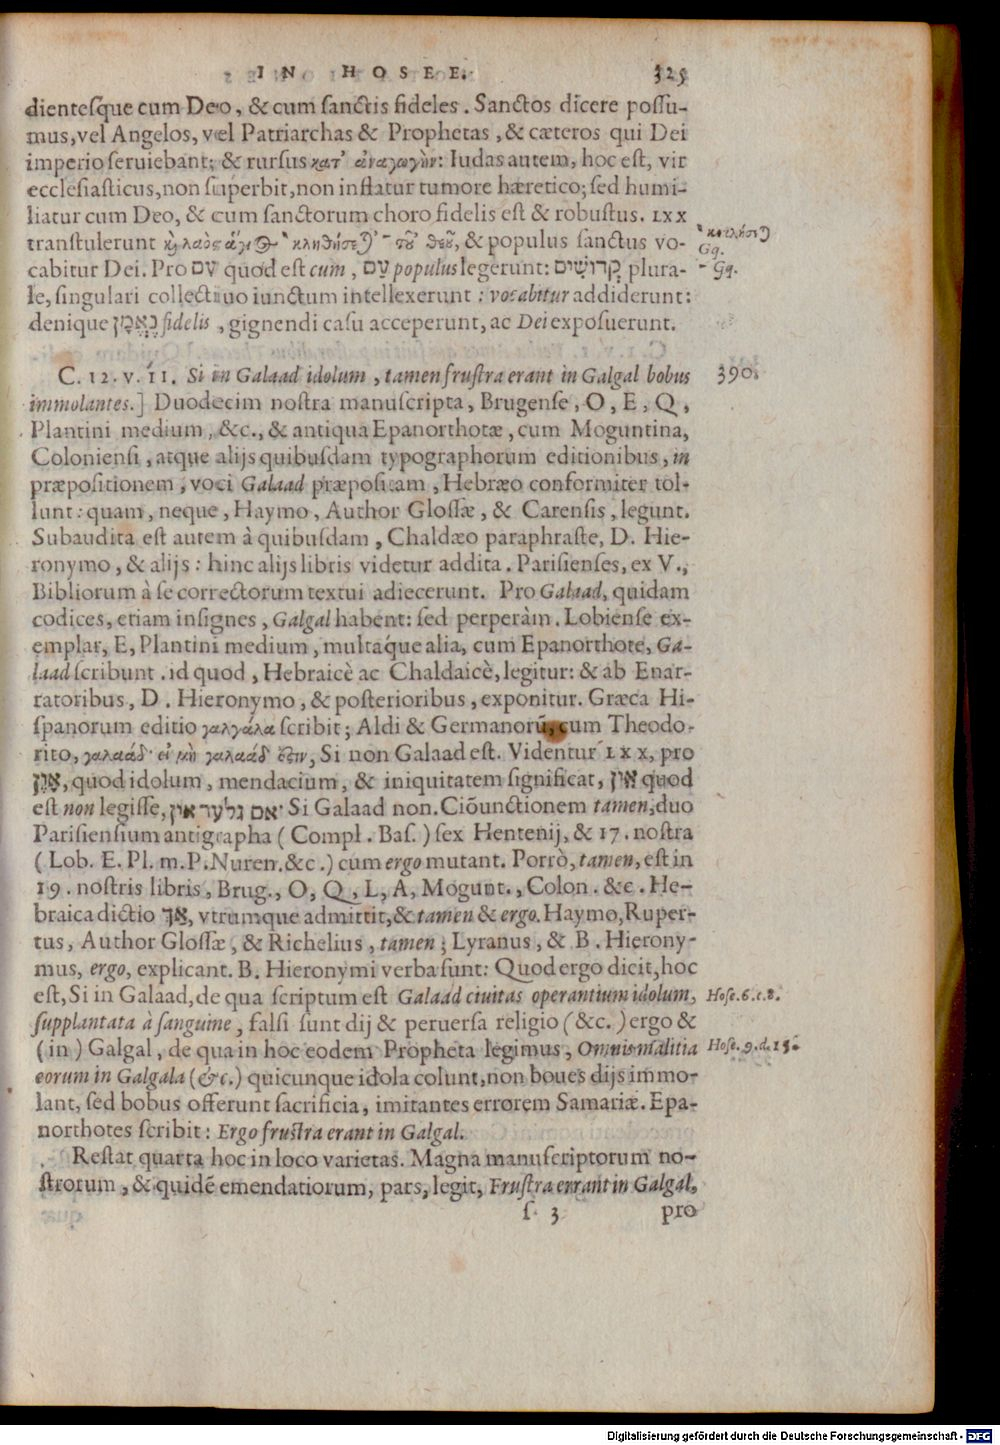 IN HOSEE. 325
dientesque cum Deo, & cum sanctis fideles. Sanctos dicere possu-
mus, vel Angelos, vel Patriarchas & Prophetas, & cæteros qui Dei
imperio seruiebant; & rursus κατ' ἀναγωγὴν: Iudas autem, hoc est, vir
ecclesiasticus, non superbit, non inflatur tumore hæretico; sed humi-
liatur cum Deo, & cum sanctorum choro fidelis est & robustus. LXX
transtulerunt καὶ λαὸς ἅγιος κληθήσεται τοῦ θεοῦ, & populus sanctus vo-
κεκλήσεται
Gq.
cabitur Dei. Pro עִם quod est cum, עַם populus legerunt: קְדוֹשִׁים plura-
Gq.
le, singulari collectiuo iunctum intellexerunt: vocabitur addiderunt:
denique נֶאֱמָן fidelis, gignendi casu acceperunt, ac Dei exposuerunt.
C. 12. v. 11. Si in Galaad idolum, tamen frustra erant in Galgal bobus
390.
immolantes.] Duodecim nostra manuscripta, Brugense, O, E, Q,
Plantini medium, &c., & antiqua Epanorthotæ, cum Moguntina,
Coloniensi, atque alijs quibusdam typographorum editionibus, in
præpositionem, voci Galaad præpositam, Hebræo conformiter tol-
lunt: quam, neque, Haymo, Author Glossæ, & Carensis, legunt.
Subaudita est autem à quibusdam, Chaldæo paraphraste, D. Hie-
ronymo, & alijs: hinc alijs libris videtur addita. Parisienses, ex V.,
Bibliorum à se correctorum textui adiecerunt. Pro Galaad, quidam
codices, etiam insignes, Galgal habent: sed perperàm. Lobiense ex-
emplar, E, Plantini medium, multáque alia, cum Epanorthote, Ga-
laad scribunt. id quod, Hebraicè ac Chaldaicè, legitur: & ab Enar-
ratoribus, D. Hieronymo, & posterioribus, exponitur. Græca Hi-
spanorum editio γαλγάλα scribit; Aldi & Germanorū, cum Theodo-
rito, γαλαάδ· εἰ μὴ γαλαάδ ἐστιν, Si non Galaad est. Videntur LXX, pro
אָוֶן, quod idolum, mendacium, & iniquitatem significat, אֵין quod
est non legisse, אם גלעד אין Si Galaad non. Cōiunctionem tamen, duo
Parisiensium antigrapha (Compl. Bas.) sex Hentenij, & 17. nostra
(Lob. E. Pl. m. P. Nuren. &c.) cum ergo mutant. Porrò, tamen, est in
19. nostris libris, Brug., O, Q, L, A, Mogunt., Colon. &c. He-
braica dictio אַךְ, vtrumque admittit, & tamen & ergo. Haymo, Ruper-
tus, Author Glossæ, & Richelius, tamen; Lyranus, & B. Hierony-
mus, ergo, explicant. B. Hieronymi verba sunt: Quod ergo dicit, hoc
est, Si in Galaad, de qua scriptum est Galaad ciuitas operantium idolum,
Hose. 6. c. 8.
supplantata à sanguine, falsi sunt dij & peruersa religio (&c.) ergo &
(in) Galgal, de qua in hoc eodem Propheta legimus, Omnis malitia
Hose. 9. d. 15.
eorum in Galgala (&c.) quicunque idola colunt, non boues dijs immo-
lant, sed bobus offerunt sacrificia, imitantes errorem Samariæ. Epa-
northotes scribit: Ergo frustra erant in Galgal.
Restat quarta hoc in loco varietas. Magna manuscriptorum no-
strorum, & quidē emendatiorum, pars, legit, Frustra errant in Galgal,
s 3 pro
Digitalisierung gefördert durch die Deutsche Forschungsgemeinschaft - DFG